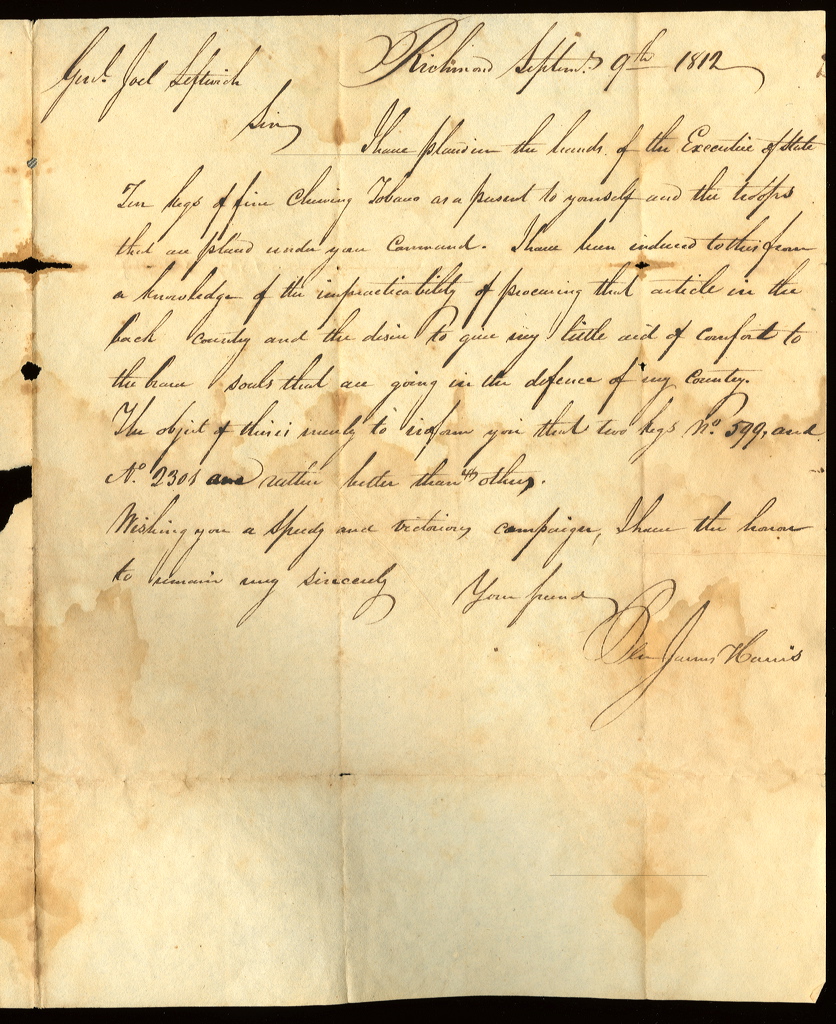 Richmond Septemr. 9th 1812
Genl. Joel Leftwich
Sir
I have placed in the hands of the Executive of State
Ten kegs of fine Chewing Tobacco as a present to yourself and the troops
that are placed under your Command. I have been induced to this from
a knowledge of the impracticability of procuring that article in the
back country and the desire to give my little aid of comfort to
the brave souls that are going in the defence of my Country.
The object of this is merely to inform you that two kegs No. 599, and
No. 2301 are rather better than the others.
Wishing you a speedy and victorious campaign, I have the honor
to remain very sincerely Your friend
Ben James Harris